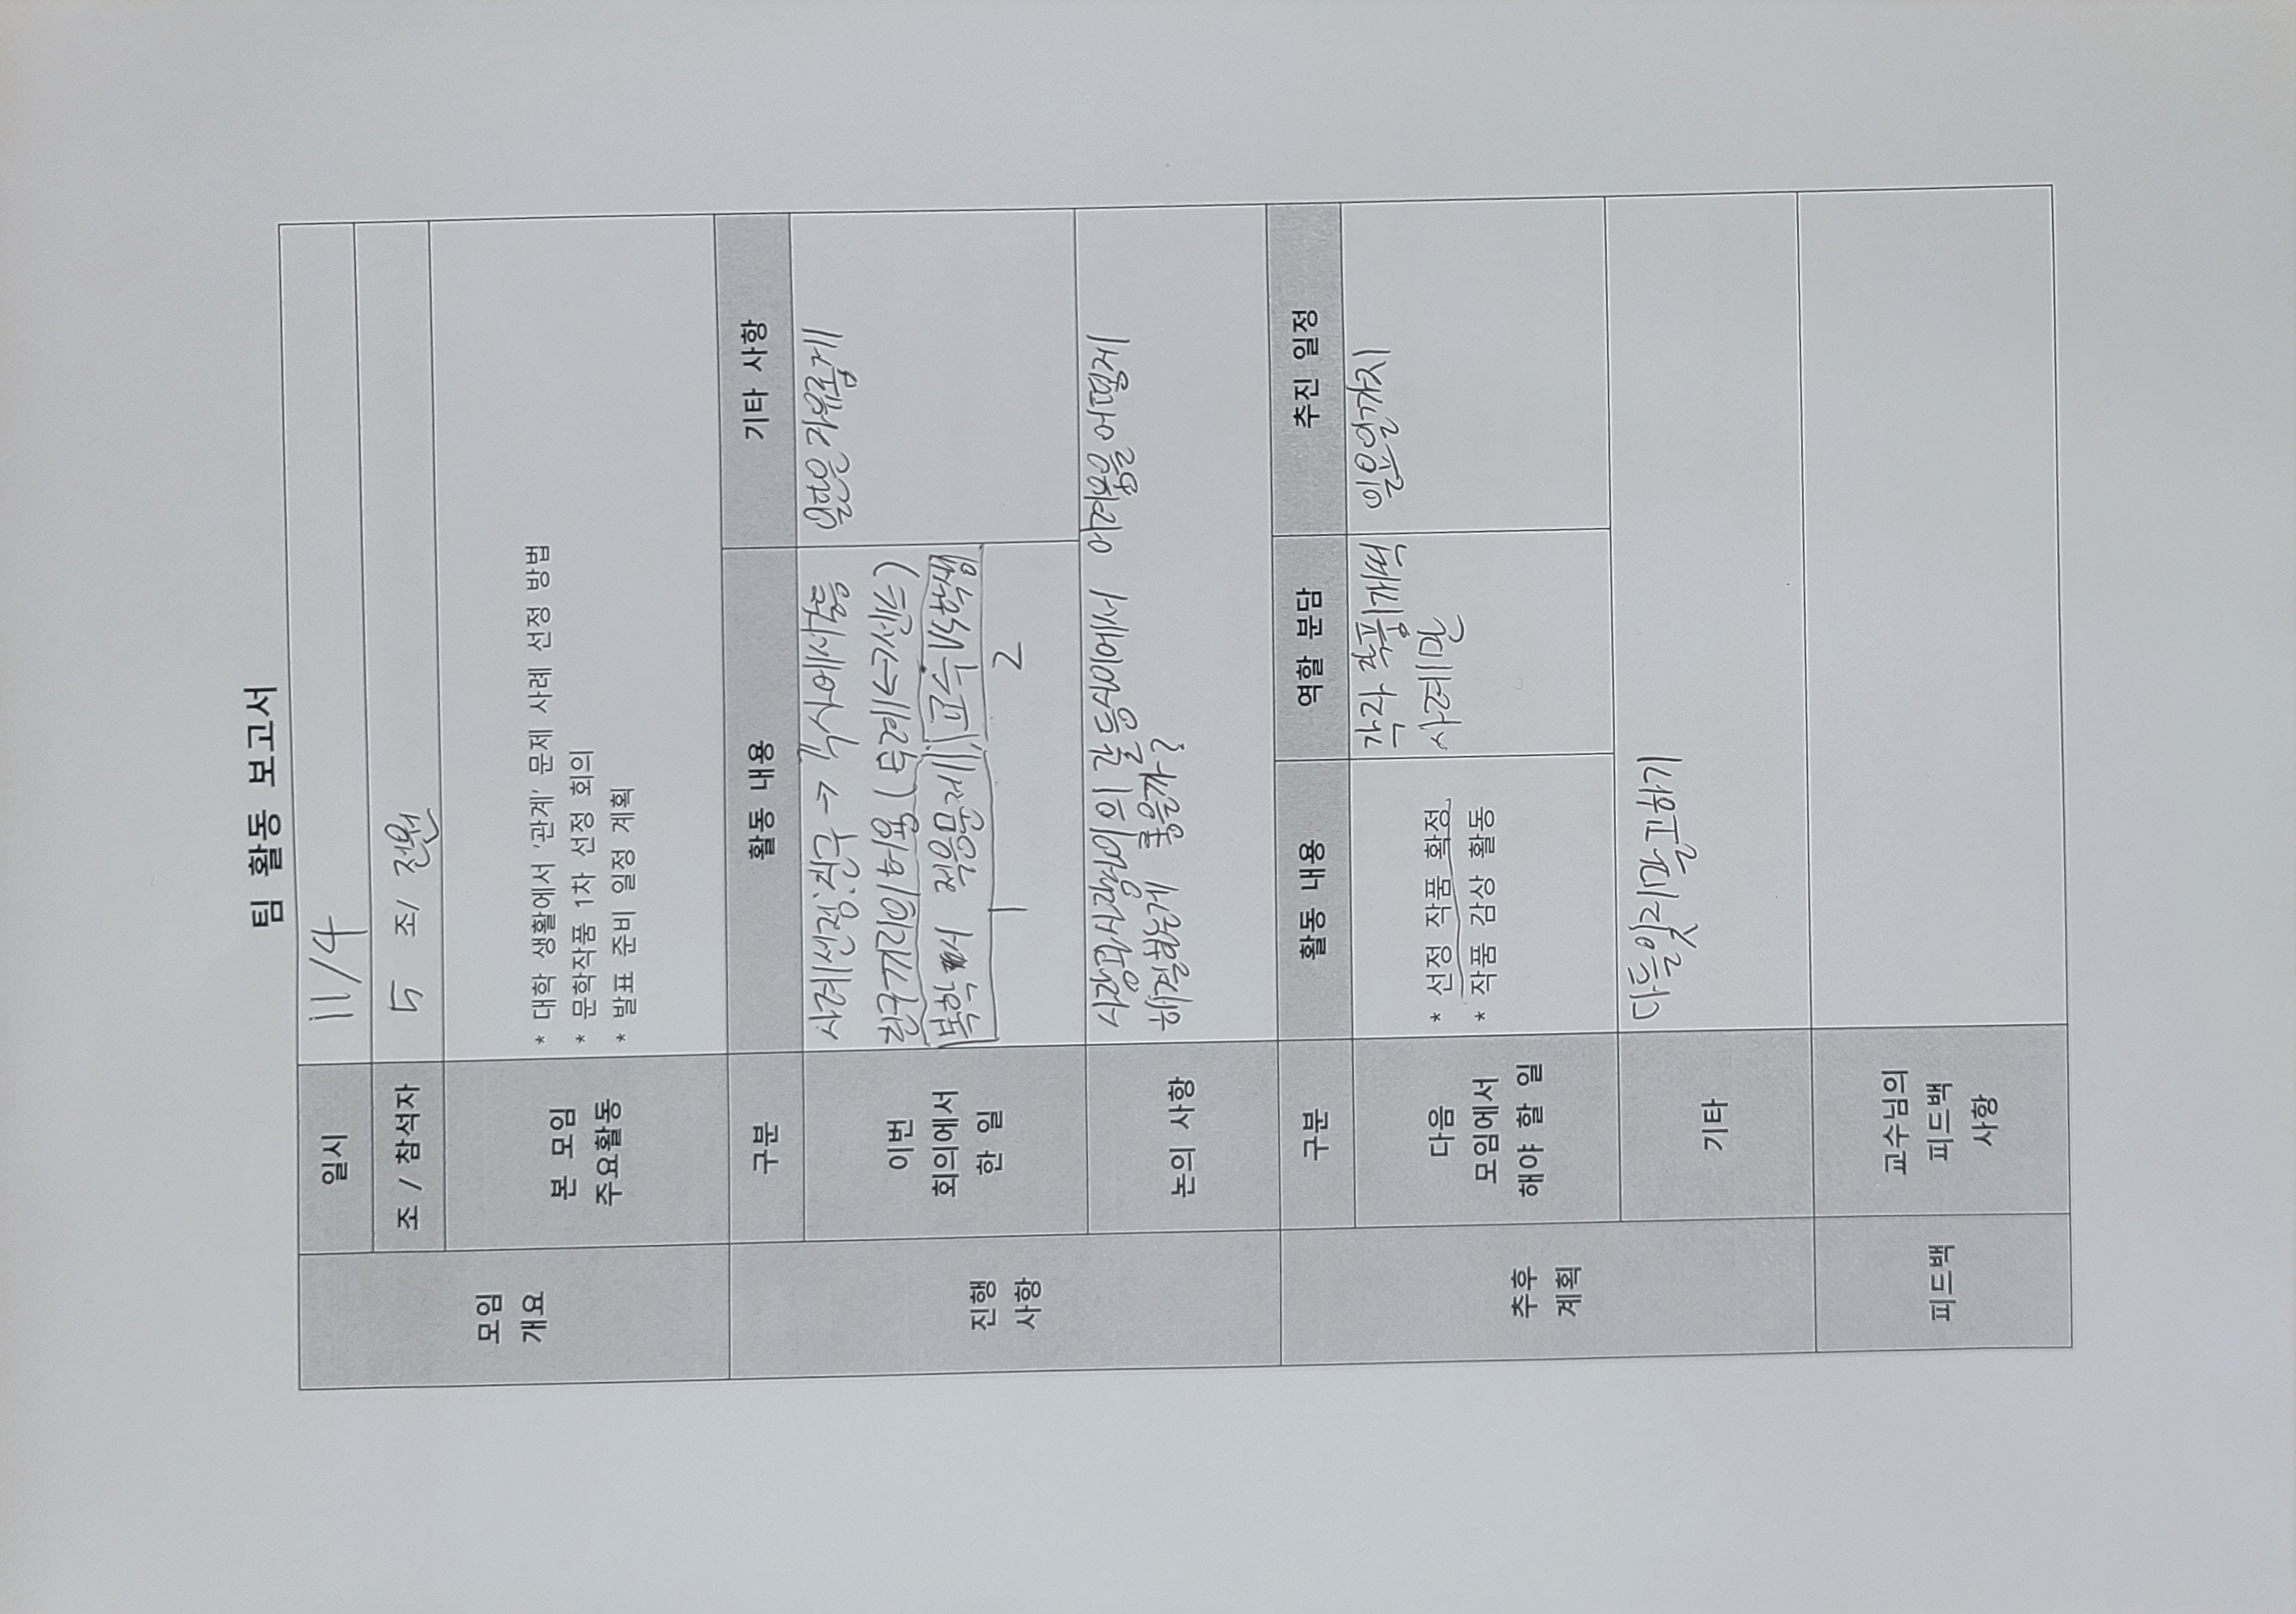 팀 활동 보고서
모임
개요
일시
11/4
조 / 참석자
5 조/ 전원
본 모임
주요활동
* 대학 생활에서 '관계' 문제 사례 선정 방법
* 문학작품 1차 선정 회의
* 발표 준비 일정 계획
진행
사항
구분
활동 내용
기타 사항
이번
회의에서
한 일
사례선정: 친구 →
친구끼리의 허용 ( ↔ 센스)
복학 시 적응문제, 교수 VS 학생
1 2
일단은 자유롭게
논의 사항
사람과사람사이의 갈등사이에서 어려움을 어떻게
해결하는게 좋을까?
추후
계획
구분
활동 내용
역할 분담
추진 일정
다음
모임에서
해야 할 일
* 선정 작품 확정
* 작품 감상 활동
각자 작품1개씩
사례만
일요일까지
기타
다들잊지말고하기
피드백
교수님의
피드백
사항